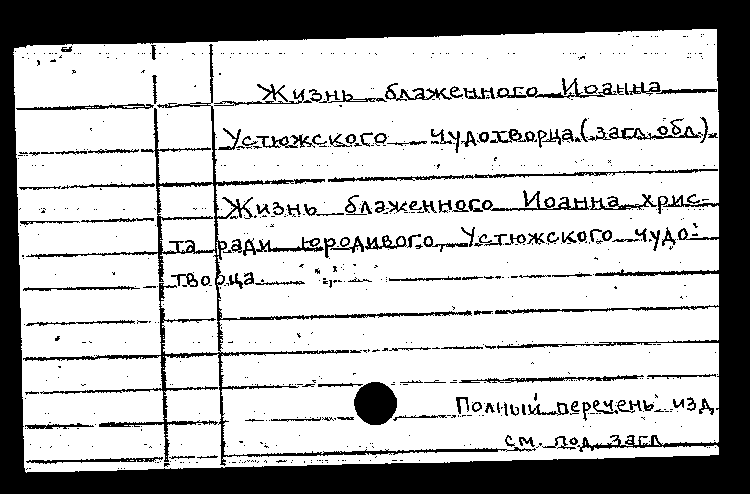 Жизнь блаженного Иоанна
Устюжского чудотворца (загл. обл.)
Жизнь блаженного Иоанна хрис-
та ради юродивого, Устюжского чудо-
творца.
Полный перечень изд.
см. под загл.